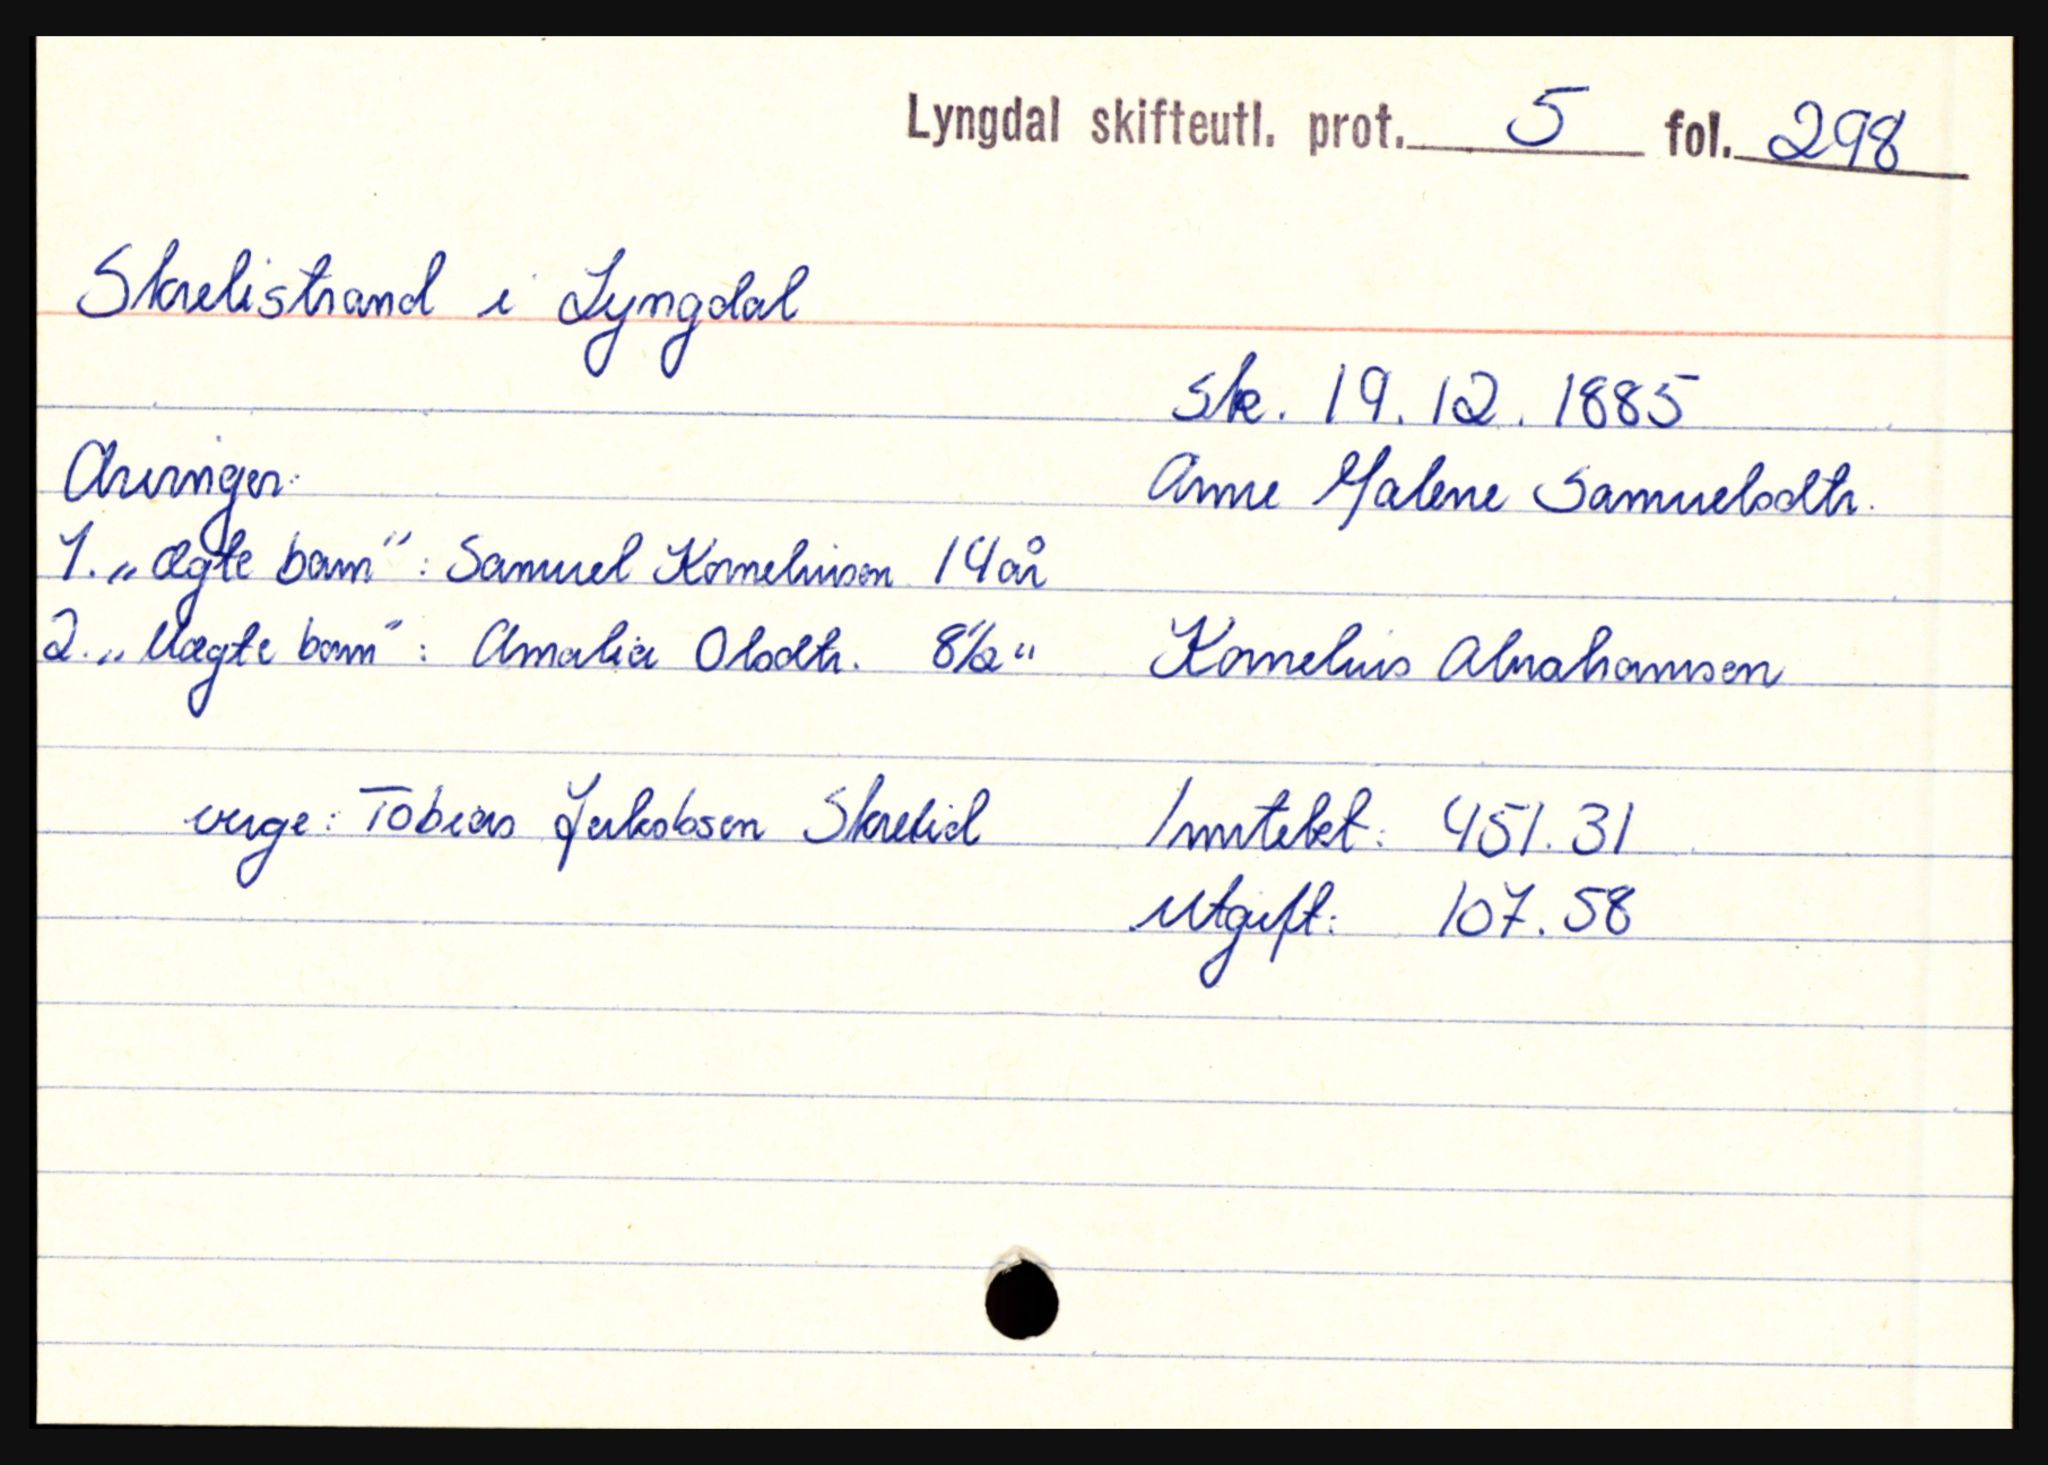 Lyngdal skifteutl. prot. 5 fol. 298
Skrelistrand i Lyngdal
Sk. 19.12.1885
Arvinger:
Anne Malene Samuelsdtr.
1. „Ægte barn": Samuel Korneliusen 14 år
2. „Uægte barn": Amalia Olsdtr. 8½ "
Kornelius Abrahamsen
verge: Tobias Jakobsen Skrelid
Inntekt: 451.31
Utgift: 107.58